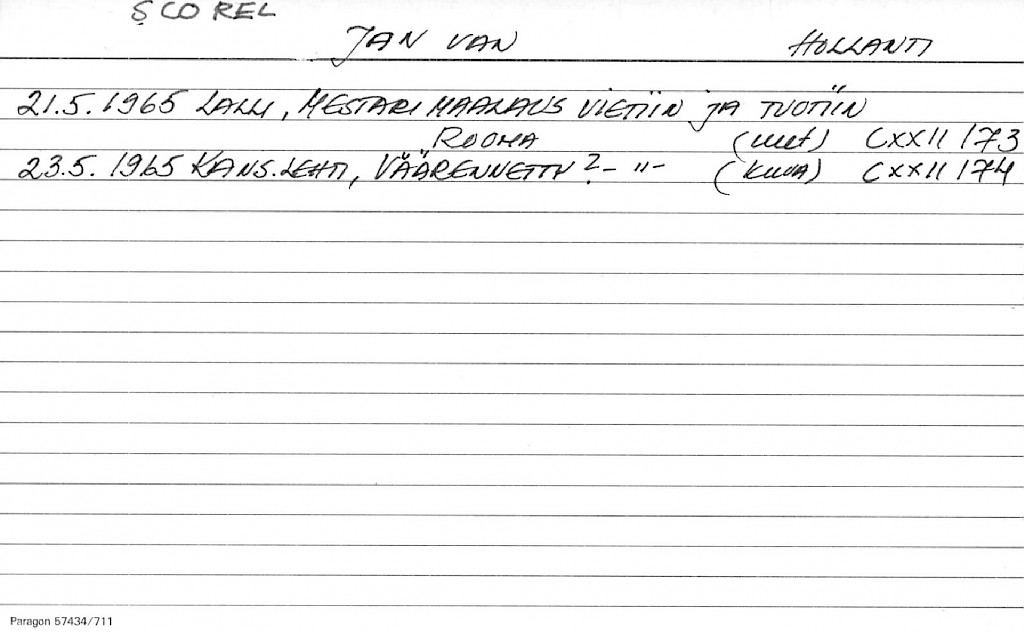 SCOREL
JAN VAN HOLLANTI
21.5.1965 LALLI, MESTARIMAALAUS VIETIIN JA TUOTIIN
ROOMA (uut) CXXII 173
23.5.1965 KANS.LEHTI, VÄÄRENNETTY? - " - (kuva) CXXII 174
Paragon 57434/711